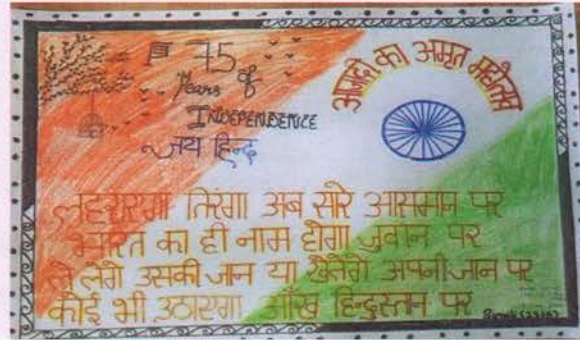 75
Years of
INDEPENDENCE
जय हिन्द
आजादी का अमृत महोत्सव
लहराएगा तिरंगा अब सारे आसमान पर
भारत का ही नाम होगा जुबान पर
ले लेंगे उसकी जान या खेलेंगे अपनी जान पर
कोई भी उठाएगा आँख हिन्दुस्तान पर